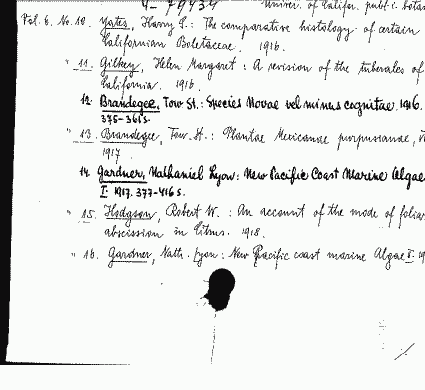 4-79434 Univer. of Califor. publ. botan
Vol. 6. No. 10. Yates, Harry S.: The comparative histology of certain
Californian Boletaceae. 1916.
" 11. Gilkey, Helen Margaret: A revision of the tuberales of
California. 1916.
12. Brandegee, Tow. St.: Species Novae vel minus cognitae. 1916.
" 13. Brandegee, Tow. St.: Plantae Mexicanae purpusianae,
1917.
14. Gardner, Nathaniel Lyon: New Pacific Coast Marine Algae
I. 1917. 377-416 s.
" 15. Hodgson, Robert W.: An account of the mode of foliar
abscission in Citrus. 1918.
" 16. Gardner, Nath. Lyon: New Pacific coast marine Algae II. 19